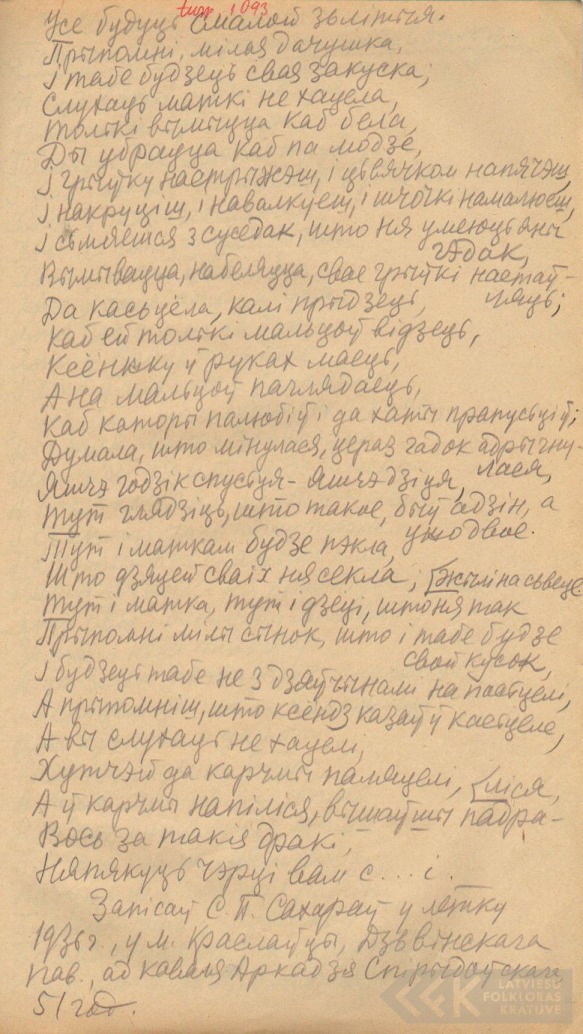 turp. 1093
Усе будуць смалой зьліты́я.
Прыпомні, мілая дачушка,
І табе будзець свая закуска;
Слухаць маткі не хацела,
Толькі вымыцца каб бела,
Ды убрацца каб па модзе,
І грыўку настрыжэш, і цьвячком напячэш,
І накруціш, і навалкуеш, і шчочкі намалюеш,
І сьмяешся з суседак, што ня умеюць яны
гэдак,
Вымывацца, набеляцца, свае грыўкі настаў-
ляць;
Да касьцёла, калі прыдзець,
Каб ей толькі мальцоў відзець,
Ксёнжку ў руках маець,
А на мальцоў паглядаець,
Каб каторы палюбіў і да хаты прапусьціў;
Думала, што мінулася, цераз гадок адрыгну-
лася,
Яшчэ годзік спустуя - яшчэ дзіця,
Тут глядзіць, што такое, быў адзін, а
ужо двое.
Тут і маткам будзе пэкла,
Што дзяцей сваіх ня секла; [жылі на сьвеце.
Тут і матка, тут і дзеці, што ня так
Прыпомні мілы сынок, што і табе будзе
свой кусок,
І будзець табе не з дзяўчынамі на паатцелі,
А прыпомніш, што ксёндз казаў ў касцеле,
А вы слухаць не хацелі,
Хутчэй да карчмы паляцелі, [ліся,
А ў карчмы напіліся, вышаўшы падра-
Вось за такія дракі,
Няпякуць чэрці вам с...і.
Запісаў С. П. Сахараў у летку
1936 г., у м. Краслаўцы, Дзьвінскага
пав., ад каваля Аркадзя Спірыдоўскага
51 год.
LATVIEŠU
FOLKLORAS
KRĀTUVE